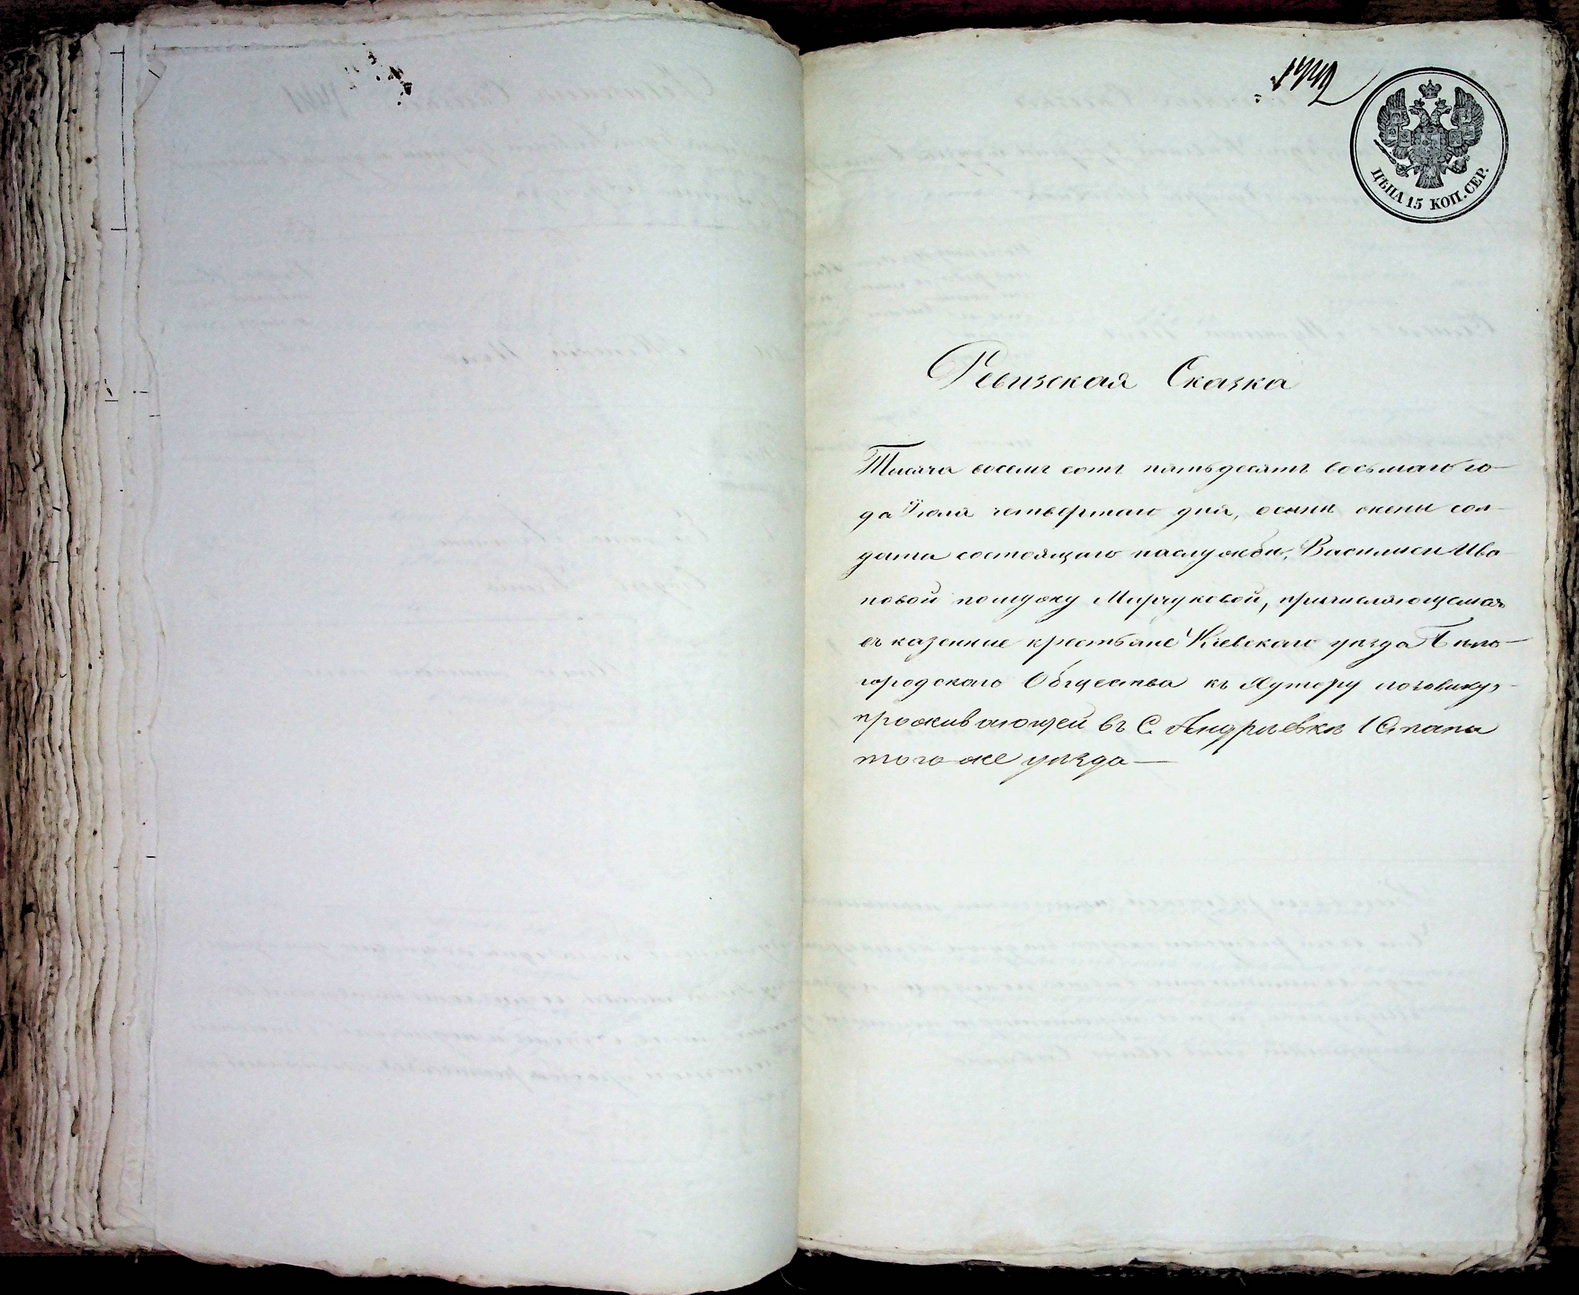 ЦѢНА 15 КОП. СЕР.
Ревизская Сказка
Тысяча восемь сотъ пятьдесятъ восьмаго го-
да Іюля четвертаго дня, о жены сол-
дата состоящаго на службѣ, Василисы Ива
новой по мужу Марчуковой, причисляющемся
въ казенные крестьяне Кіевскаго уѣзда Бѣло-
городскаго Общества къ хутору
проживающей въ С. Андріевкѣ 1 Стана
того-же уѣзда —